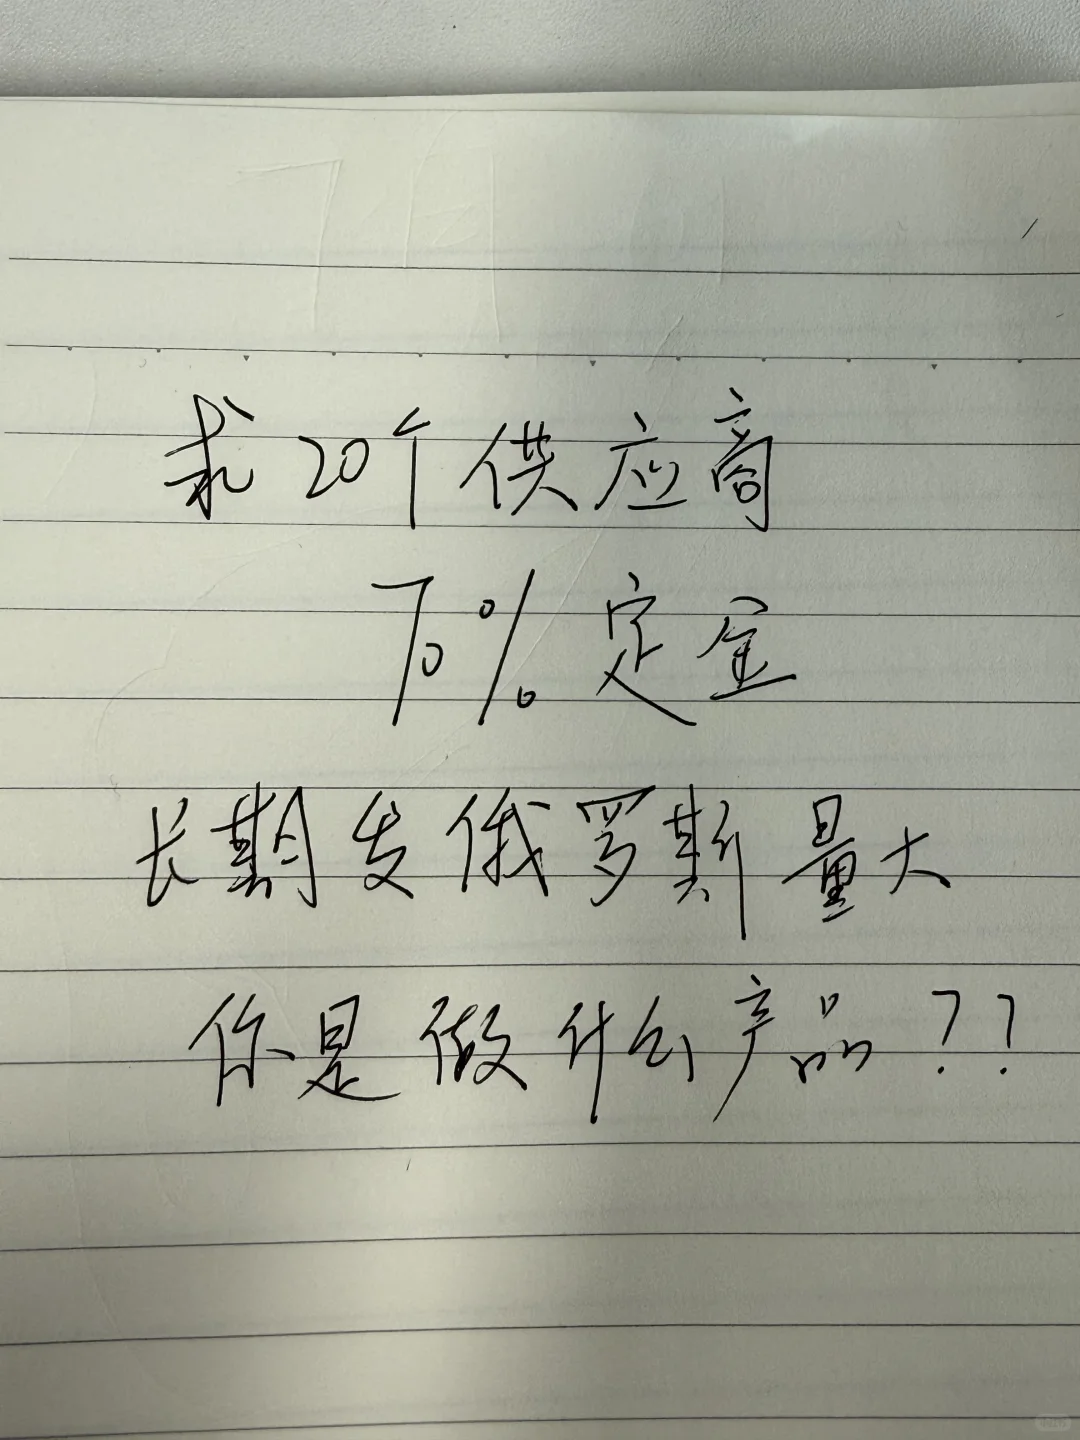 求20个供应商
70%定金
长期发俄罗斯量大
你是做什么产品??